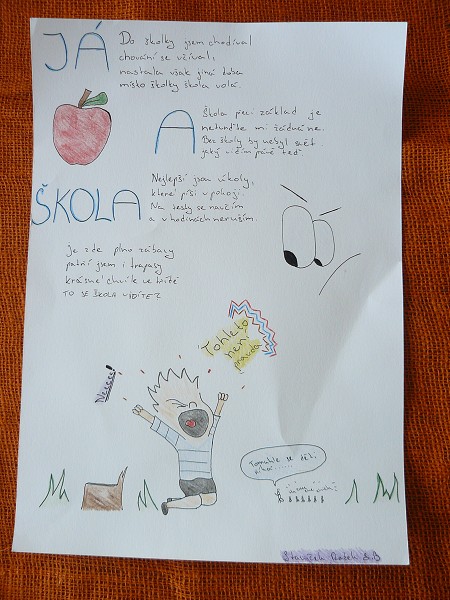 JÁ
Do školky jsem chodíval
chování se užíval,
nastala však jiná doba
místo školky škola volá.
A
Škola přeci základ je
netvrďte mi žádná ne.
Bez školy by nebyl svět
jaký vidím právě teď.
ŠKOLA
Nejlepší jsou úkoly,
které píši v pokoji.
Na testy se naučím
a v hodinách neruším.
Je zde plno zábavy
patří jsem i trapasy
krásné chvíle ve třídě
TO SE ŠKOLA VIDÍTE?
Tohleto
není
pravda
Neeeee!
Tomuhle se děti